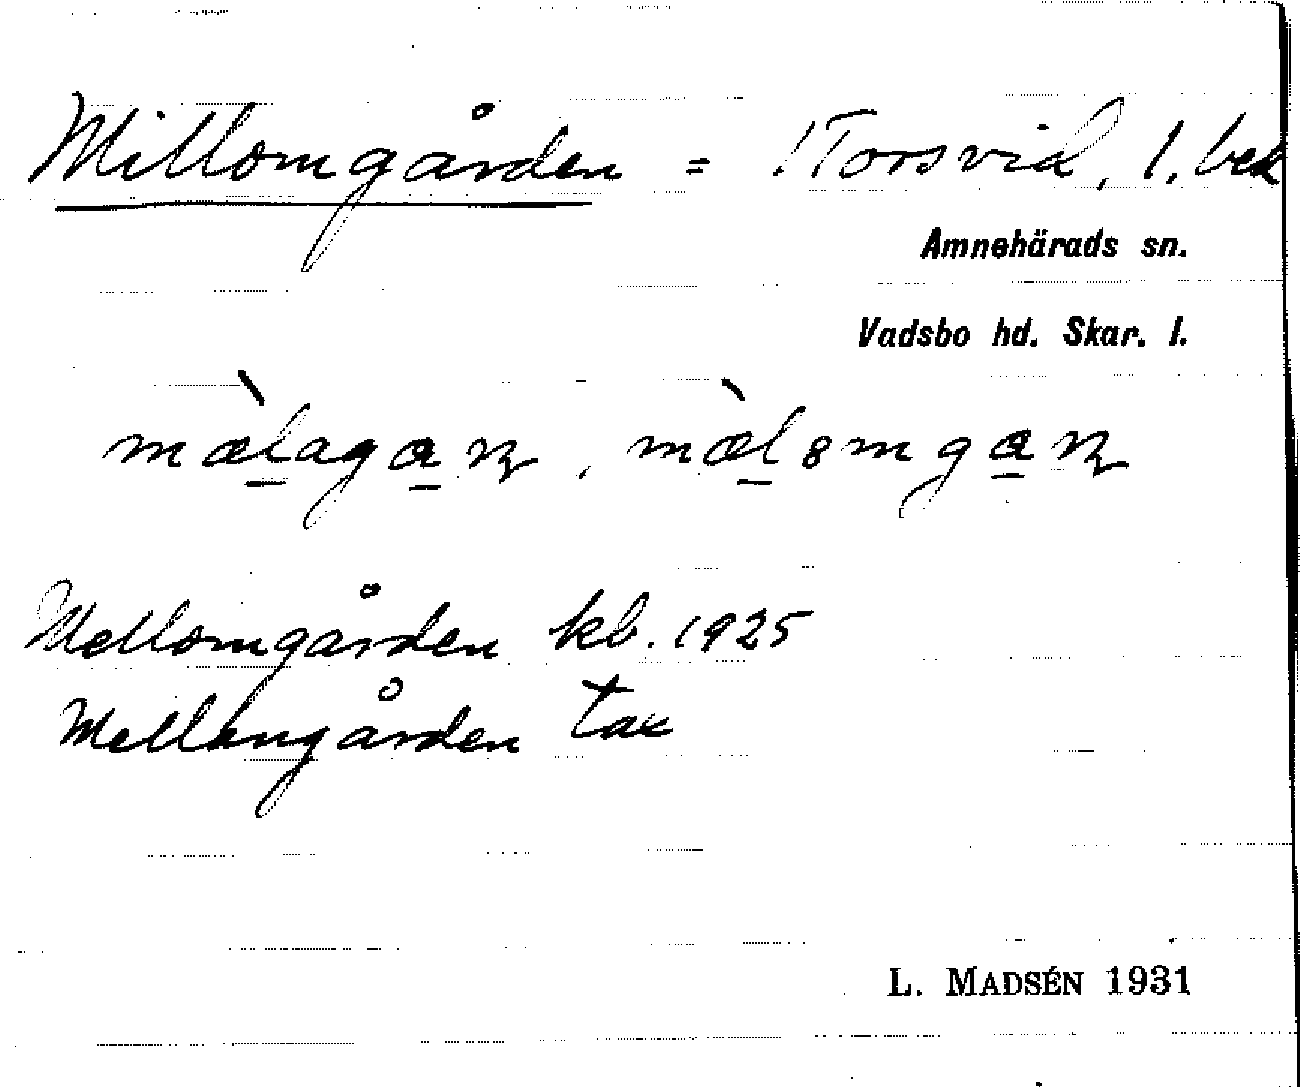 Millomgården = 1 Torsvid, 1, bek
Amnehärads sn.
Vadsbo hd. Skar. l.
mæ̀lagaɳ, mæ̀lomgaɳ
Mellomgården kb. 1925
Mellangården tax
L. MADSÉN 1931